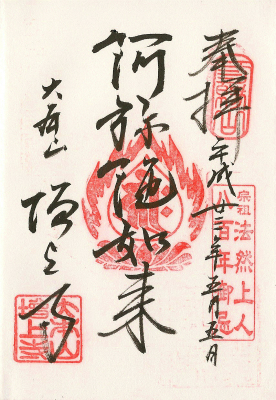 奉拝
平成廿三年五月五日
宗祖
法然上人
八百年御忌
阿弥陀如来
大本山
増上寺